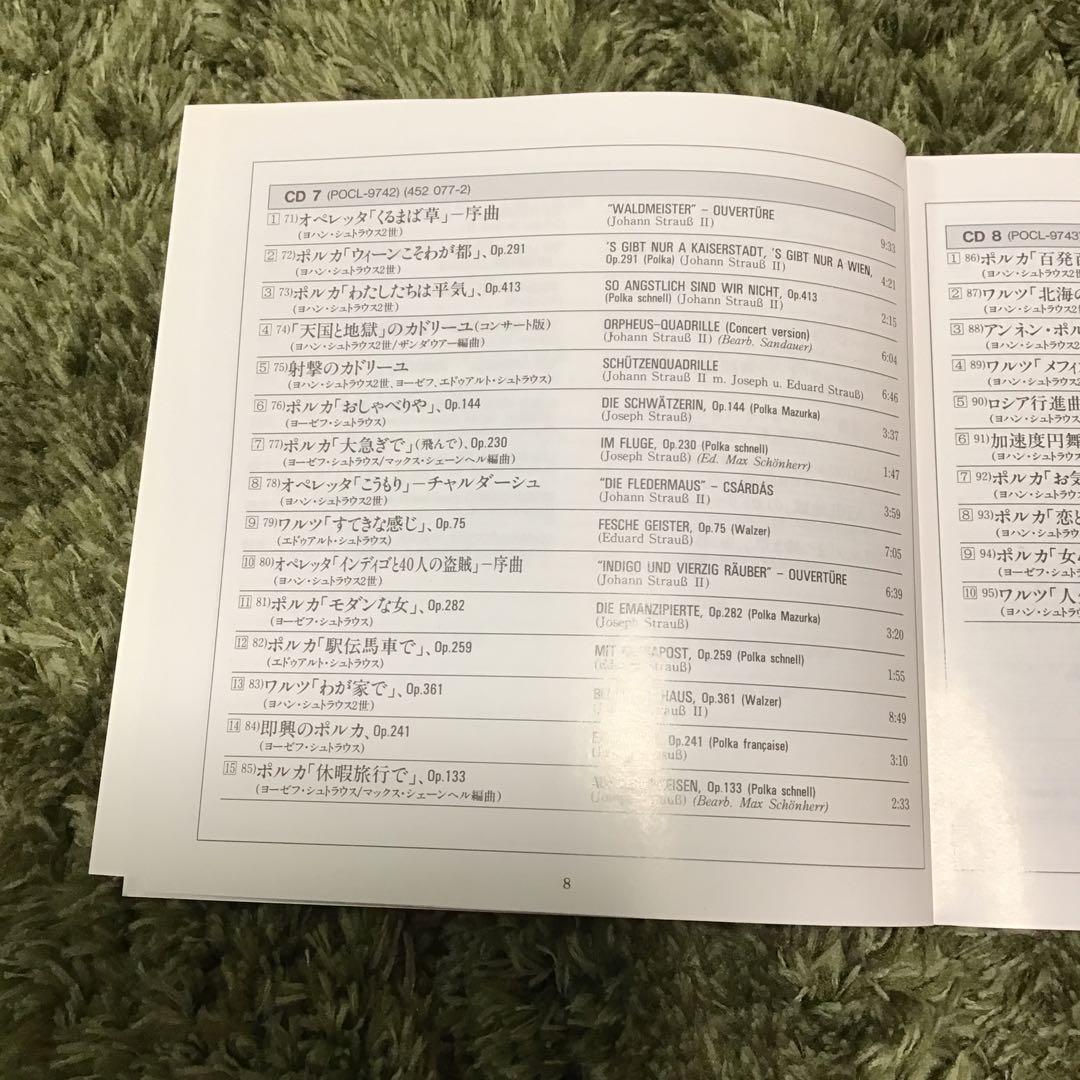 CD 7 (POCL-9742) (452 077-2)
1 71)オペレッタ「くるまば草」－序曲 "WALDMEISTER" – OUVERTÜRE
(ヨハン・シュトラウス2世) (Johann Strauß II) 9:33
2 72)ポルカ「ウィーンこそわが都」、Op.291 'S GIBT NUR A KAISERSTADT, 'S GIBT NUR A WIEN,
(ヨハン・シュトラウス2世) Op.291 (Polka) (Johann Strauß II) 4:21
3 73)ポルカ「わたしたちは平気」、Op.413 SO ANGSTLICH SIND WIR NICHT, Op.413
(ヨハン・シュトラウス2世) (Polka schnell) (Johann Strauß II) 2:15
4 74)「天国と地獄」のカドリーユ(コンサート版) ORPHEUS-QUADRILLE (Concert version)
(ヨハン・シュトラウス2世/ザンダウアー編曲) (Johann Strauß II) (Bearb. Sandauer) 6:04
5 75)射撃のカドリーユ SCHÜTZENQUADRILLE
(ヨハン・シュトラウス2世、ヨーゼフ、エドゥアルト・シュトラウス) (Johann Strauß II m. Joseph u. Eduard Strauß) 6:46
6 76)ポルカ「おしゃべりや」、Op.144 DIE SCHWÄTZERIN, Op.144 (Polka Mazurka)
(ヨーゼフ・シュトラウス) (Joseph Strauß) 3:37
7 77)ポルカ「大急ぎで」(飛んで)、Op.230 IM FLUGE, Op.230 (Polka schnell)
(ヨーゼフ・シュトラウス/マックス・シェーンヘル編曲) (Joseph Strauß) (Ed. Max Schönherr) 1:47
8 78)オペレッタ「こうもり」－チャルダーシュ "DIE FLEDERMAUS" – CSÁRDÁS
(ヨハン・シュトラウス2世) (Johann Strauß II) 3:59
9 79)ワルツ「すてきな感じ」、Op.75 FESCHE GEISTER, Op.75 (Walzer)
(エドゥアルト・シュトラウス) (Eduard Strauß) 7:05
10 80)オペレッタ「インディゴと40人の盗賊」－序曲 "INDIGO UND VIERZIG RÄUBER" – OUVERTÜRE
(ヨハン・シュトラウス2世) (Johann Strauß II) 6:39
11 81)ポルカ「モダンな女」、Op.282 DIE EMANZIPIERTE, Op.282 (Polka Mazurka)
(ヨーゼフ・シュトラウス) (Joseph Strauß) 3:20
12 82)ポルカ「駅伝馬車で」、Op.259 MIT POST, Op.259 (Polka schnell)
(エドゥアルト・シュトラウス) Strauß) 1:55
13 83)ワルツ「わが家で」、Op.361 HAUS, Op.361 (Walzer)
(ヨハン・シュトラウス2世) II) 8:49
14 84)即興のポルカ、Op.241 Op.241 (Polka française)
(ヨーゼフ・シュトラウス) 3:10
15 85)ポルカ「休暇旅行で」、Op.133 Op.133 (Polka schnell)
(ヨーゼフ・シュトラウス/マックス・シェーンヘル編曲) Strauß) (Bearb. Max Schönherr) 2:33
8
CD 8 (POCL-9743
1 86)ポルカ「百発百
(ヨハン・シュトラウス
2 87)ワルツ「北海の
(ヨハン・シュトラウス
3 88)アンネン・ポル
(ヨハン・シュトラウス2
4 89)ワルツ「メフィ
(ヨハン・シュトラウス
5 90)ロシア行進曲
(ヨハン・シュトラウス
6 91)加速度円舞
(ヨハン・シュトラウス
7 92)ポルカ「お気
(ヨハン・シュトラウス
8 93)ポルカ「恋と
(ヨハン・シュトラウ
9 94)ポルカ「女心
(ヨーゼフ・シュトラ
10 95)ワルツ「人
(ヨハン・シュトラウ